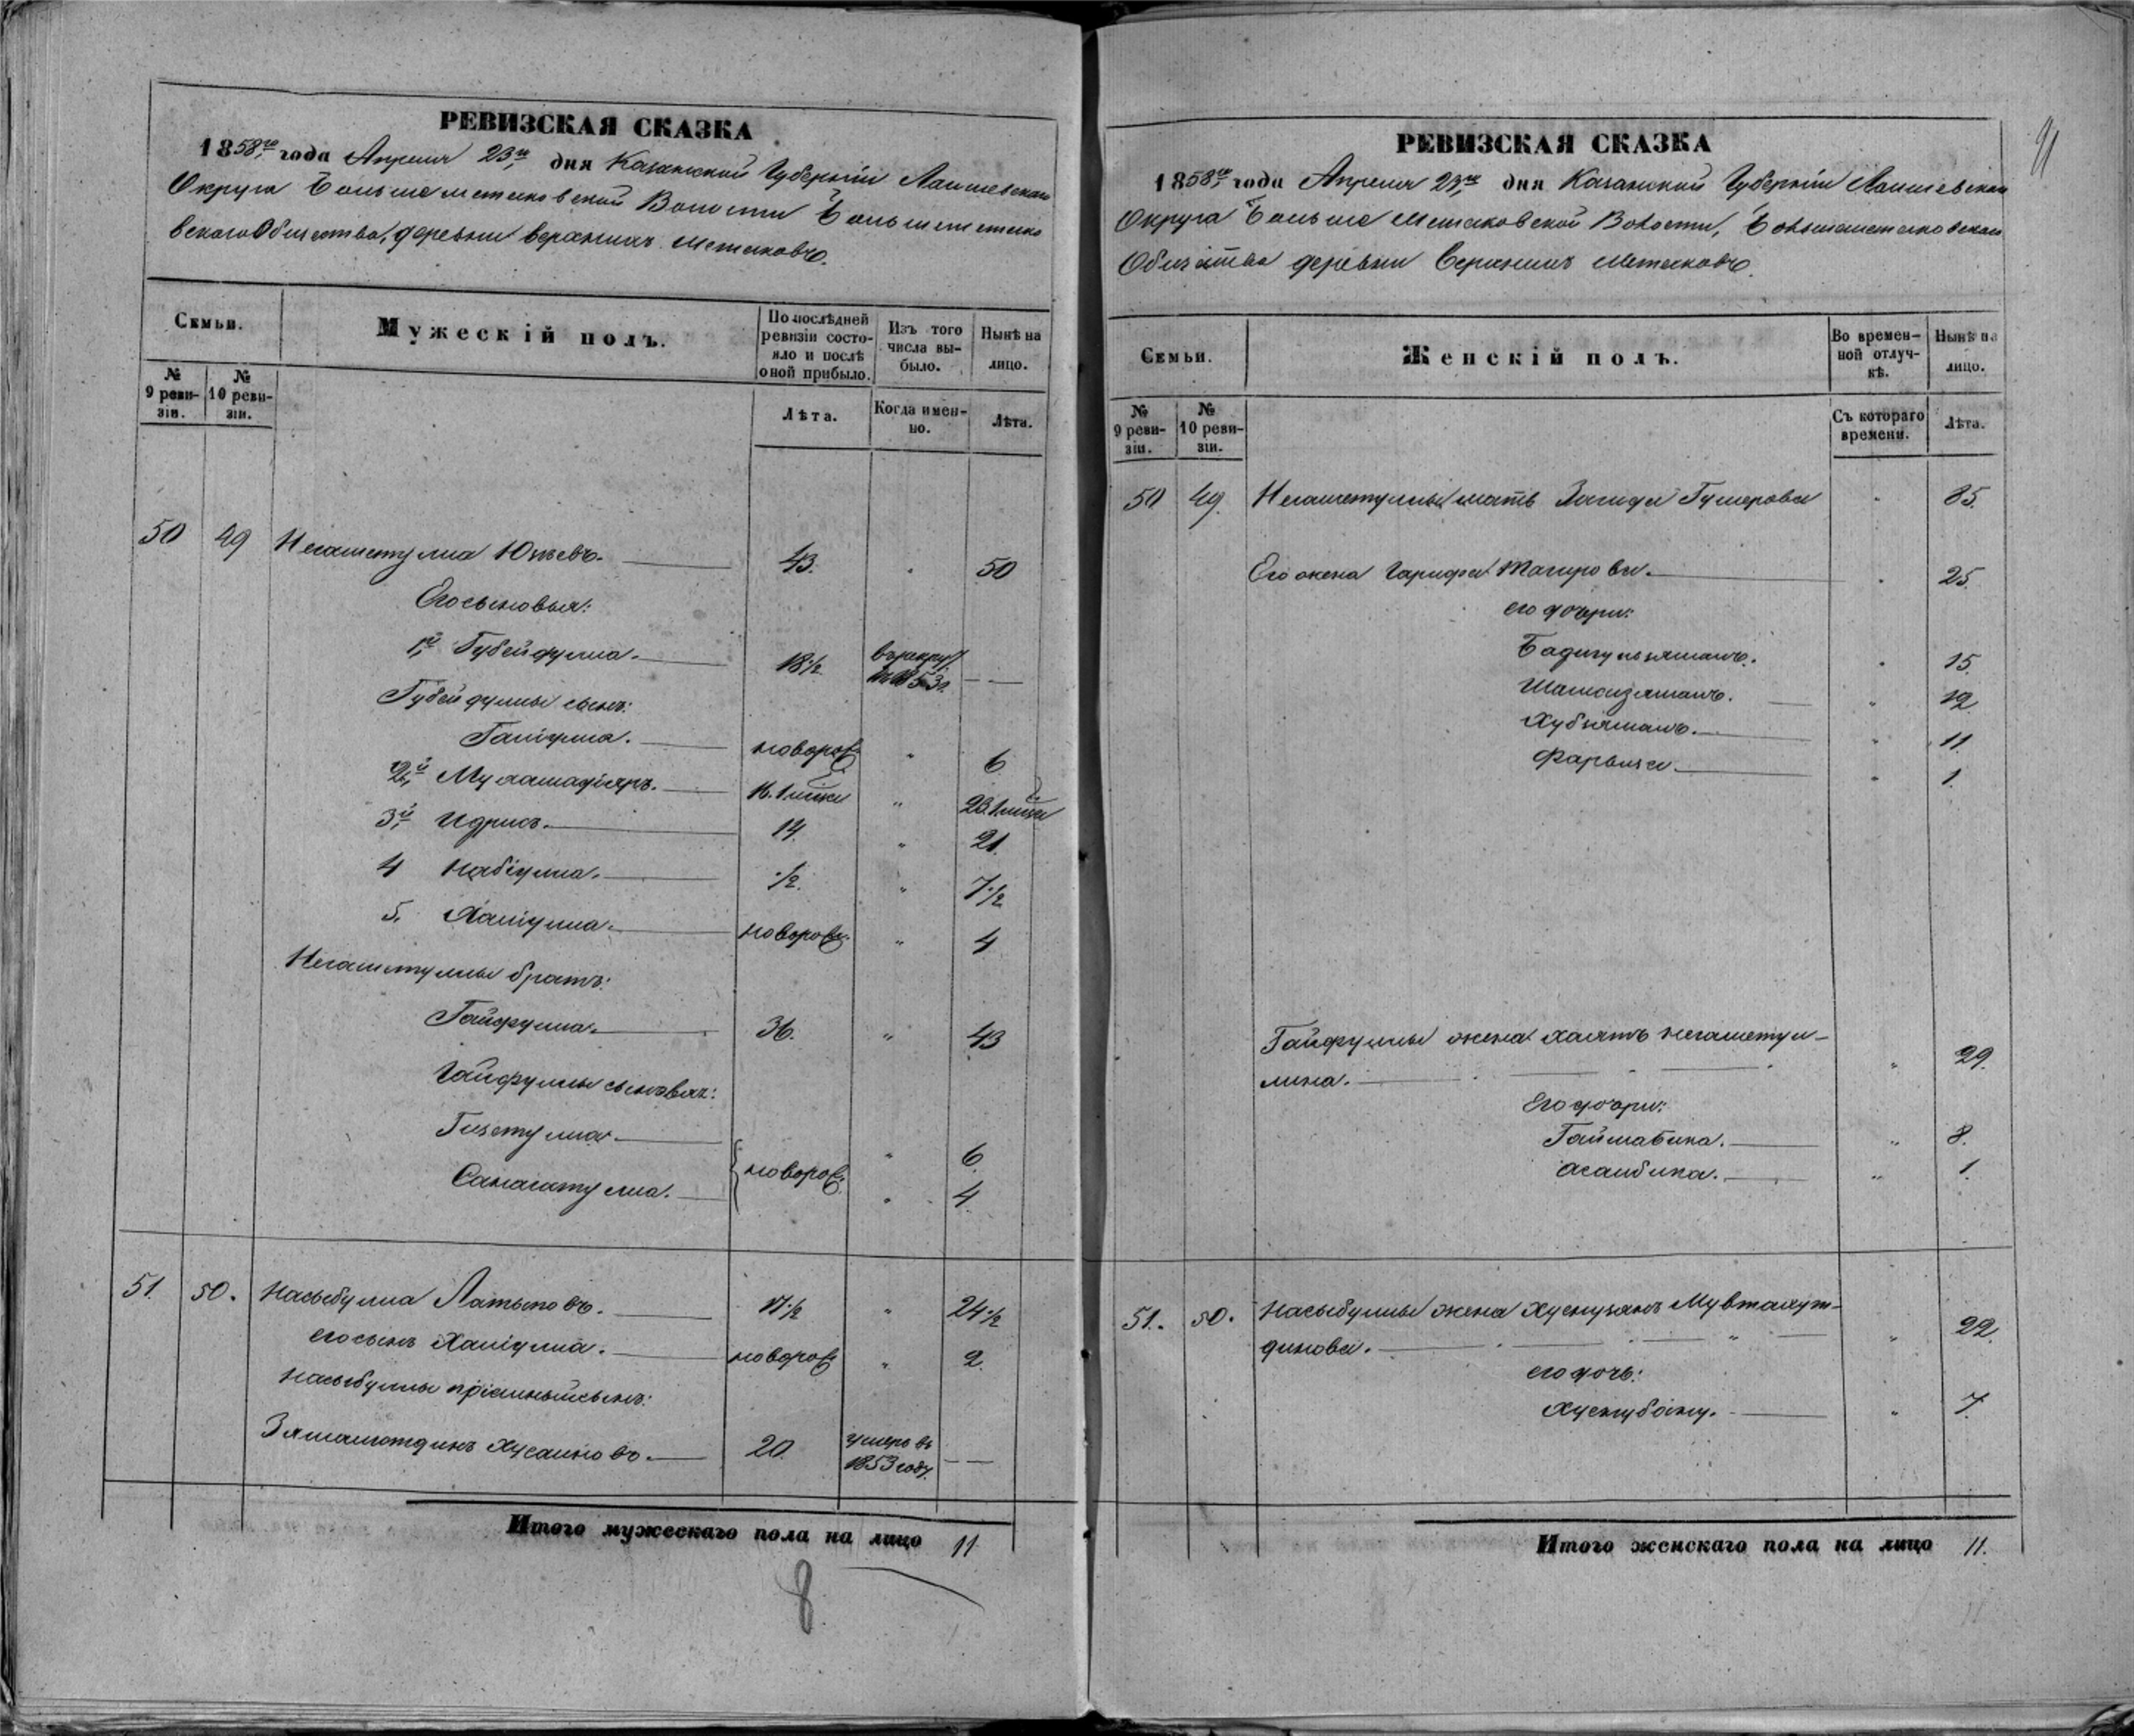 РЕВИЗСКАЯ СКАЗКА
1858го года Апреля 23го дня Казанской Губерніи Лаишевскаго
Округа Больше метесковской Волости Большеметеско
вского Общества, деревни верхнихъ метесковъ.
Семьи.
Мужескій полъ.
По послѣдней ревизіи состояло и послѣ оной прибыло.
Изъ того числа выбыло.
Нынѣ на лицо.
№ 9 ревизіи.
№ 10 ревизіи.
Лѣта.
Когда именно.
Лѣта.
50 49 Негаметулла Юнѣевъ. 43. " 50
Его сыновья:
1й Губейдулла. 18 1/2 въ рекру. въ 1853г. — —
Губейдуллы сынъ:
Галіулла. новорож " 6
2й Мухамадіяръ. 16. 1 мѣся " 23. 1 мѣся
3й Идрисъ. 14. " 21.
4 Набіулла. 1/2. " 7 1/2
5. Халіулла. новорож. " 4
Негаметуллы братъ:
Гайфулла. 36. " 43
Гайфуллы сыновья:
Гизетулла. новорож. " 6
Санагатулла. " 4
51. 50. Насыбулла Латыповъ. 17 1/2 " 24 1/2
его сынъ Халіулла. новорож " 2.
Насыбуллы пріемный сынъ:
Зямалютдинъ Хусаиновъ. 20. умеръ въ 1853 году. — —
Итого мужескаго пола на лицо 11
8
РЕВИЗСКАЯ СКАЗКА
1858го года Апреля 23го дня Казанской Губерніи Лаишевскаго
Округа Больше Метесковской Волости, Большеметесковскаго
Общества деревни Верхнихъ Метесковъ.
Семьи.
Женскій полъ.
Во временной отлучкѣ.
Нынѣ на лицо.
№ 9 ревизіи.
№ 10 ревизіи.
Съ котораго времени.
Лѣта.
50 49. Негаметуллы мать Загида Гумерова " 85.
Его жена Гарифа Тагирова. " 25.
его дочери:
Бадигульямалъ. " 15.
Шамсизямалъ. " 12
Хубъямалъ. " 11
Фарвиза " 1.
Гайфуллы жена хаятъ негаметул-
лина. " 29.
Его дочери:
Гаймабика. " 8.
асаибика. " 1.
51. 50. Насыбуллы жена Хуснизянъ Мувтахут-
динова. " 22.
его дочь:
Хуснубану. " 7.
Итого женскаго пола на лицо 11.